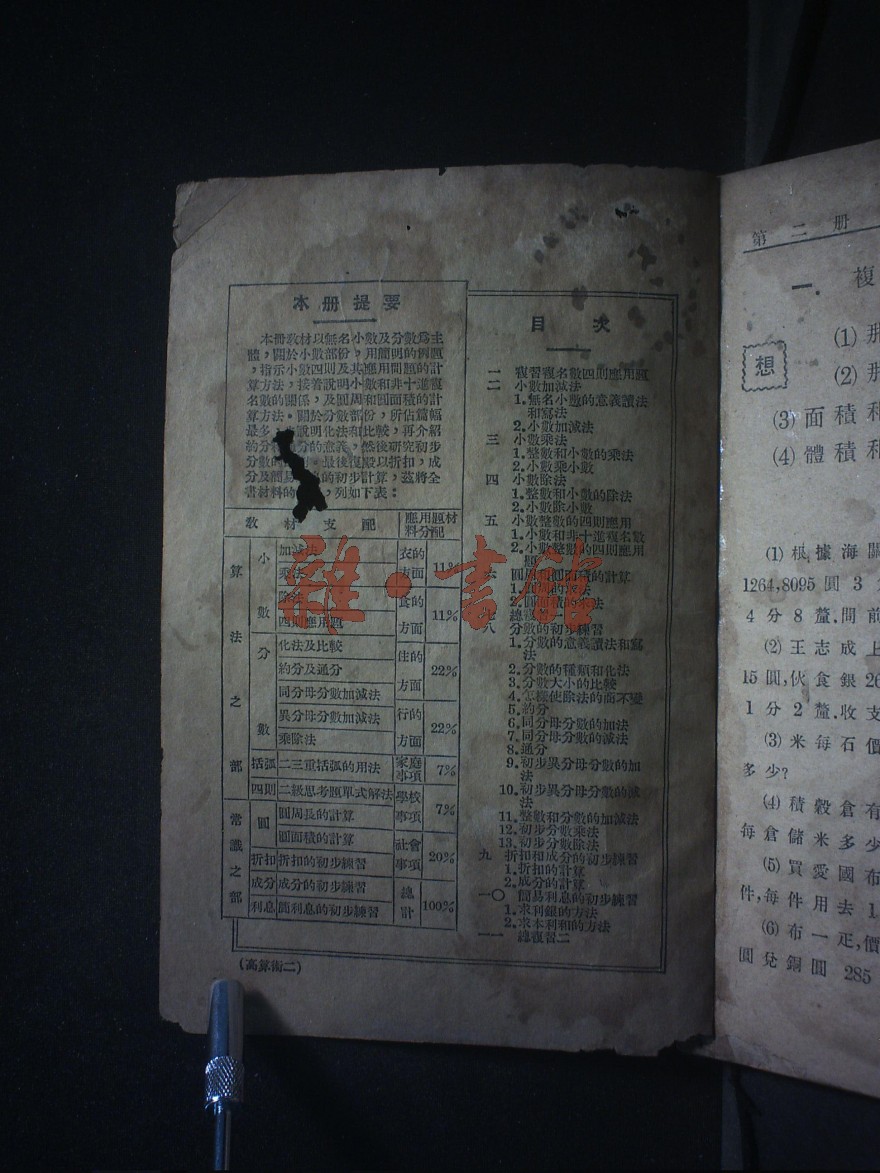 本册提要
本冊教材以無名小數及分數爲主
體，關於小數部份，用簡明的例題
，指示小數四則及其應用問題的計
算方法，接着說明小數和非十進複
名數的關係，及圓周和圓面積的計
算方法。關於分數部份，所佔篇幅
最多，說明化法和比較，再介紹
約分和分的意義，然後研究初步
分數的，最後復殿以折扣，成
分及簡易的初步計算，茲將全
書材料的，列如下表：
教材支配 應用題材料分配
算法之部
小數
加減法
乘法
除法
四則應用題
分數
化法及比較
約分及通分
同分母分數加減法
異分母分數加減法
乘除法
括弧 二三重括弧的用法
四則 二級思考題單式解法
常識之部
圓
圓周長的計算
圓面積的計算
折扣 折扣的初步練習
成分 成分的初步練習
利息 簡利息的初步練習
衣的方面 11%
食的方面 11%
住的方面 22%
行的方面 22%
家庭事項 7%
學校事項 7%
社會事項 20%
總計 100%
(高算術二)
目次
一 複習複名數四則應用題
二 小數加減法
1.無名小數的意義讀法
和寫法
2.小數加減法
三 小數乘法
1.整數和小數的乘法
2.小數乘小數
四 小數除法
1.整數和小數的除法
2.小數除小數
五 小數整數的四則應用
1.小數和非十進複名數
2.小數整數的四則應用
題
六 圓周和圓面積的計算
1.圓周的求法
2.圓面積的求法
七 總複習一
八 分數的初步練習
1.分數的意義讀法和寫
法
2.分數的種類和化法
3.分數大小的比較
4.怎樣使除法的商不變
5.約分
6.同分母分數的加法
7.同分母分數的減法
8.通分
9.初步異分母分數的加
法
10.初步異分母分數的減
法
11.整數和分數的加減法
12.初步分數乘法
13.初步分數除法
九 折扣和成分的初步練習
1.折扣的計算
2.成分的計算
一〇 簡易利息的初步練習
1.求利銀的方法
2.求本利和的方法
一一 總複習二
雜·書館
第二册
一. 複
想
(1) 那
(2) 那
(3) 面積和
(4) 體積和
(1) 根據海關
1264,8095 圓 3
4 分 8 釐,問前
(2) 王志成上
15 圓,伙食銀 26
1 分 2 釐.收支
(3) 米每石價
多少?
(4) 積穀倉有
每倉儲米多少
(5) 買愛國布
件,每件用去 1.
(6) 布一疋,價
圓兌銅圓 285